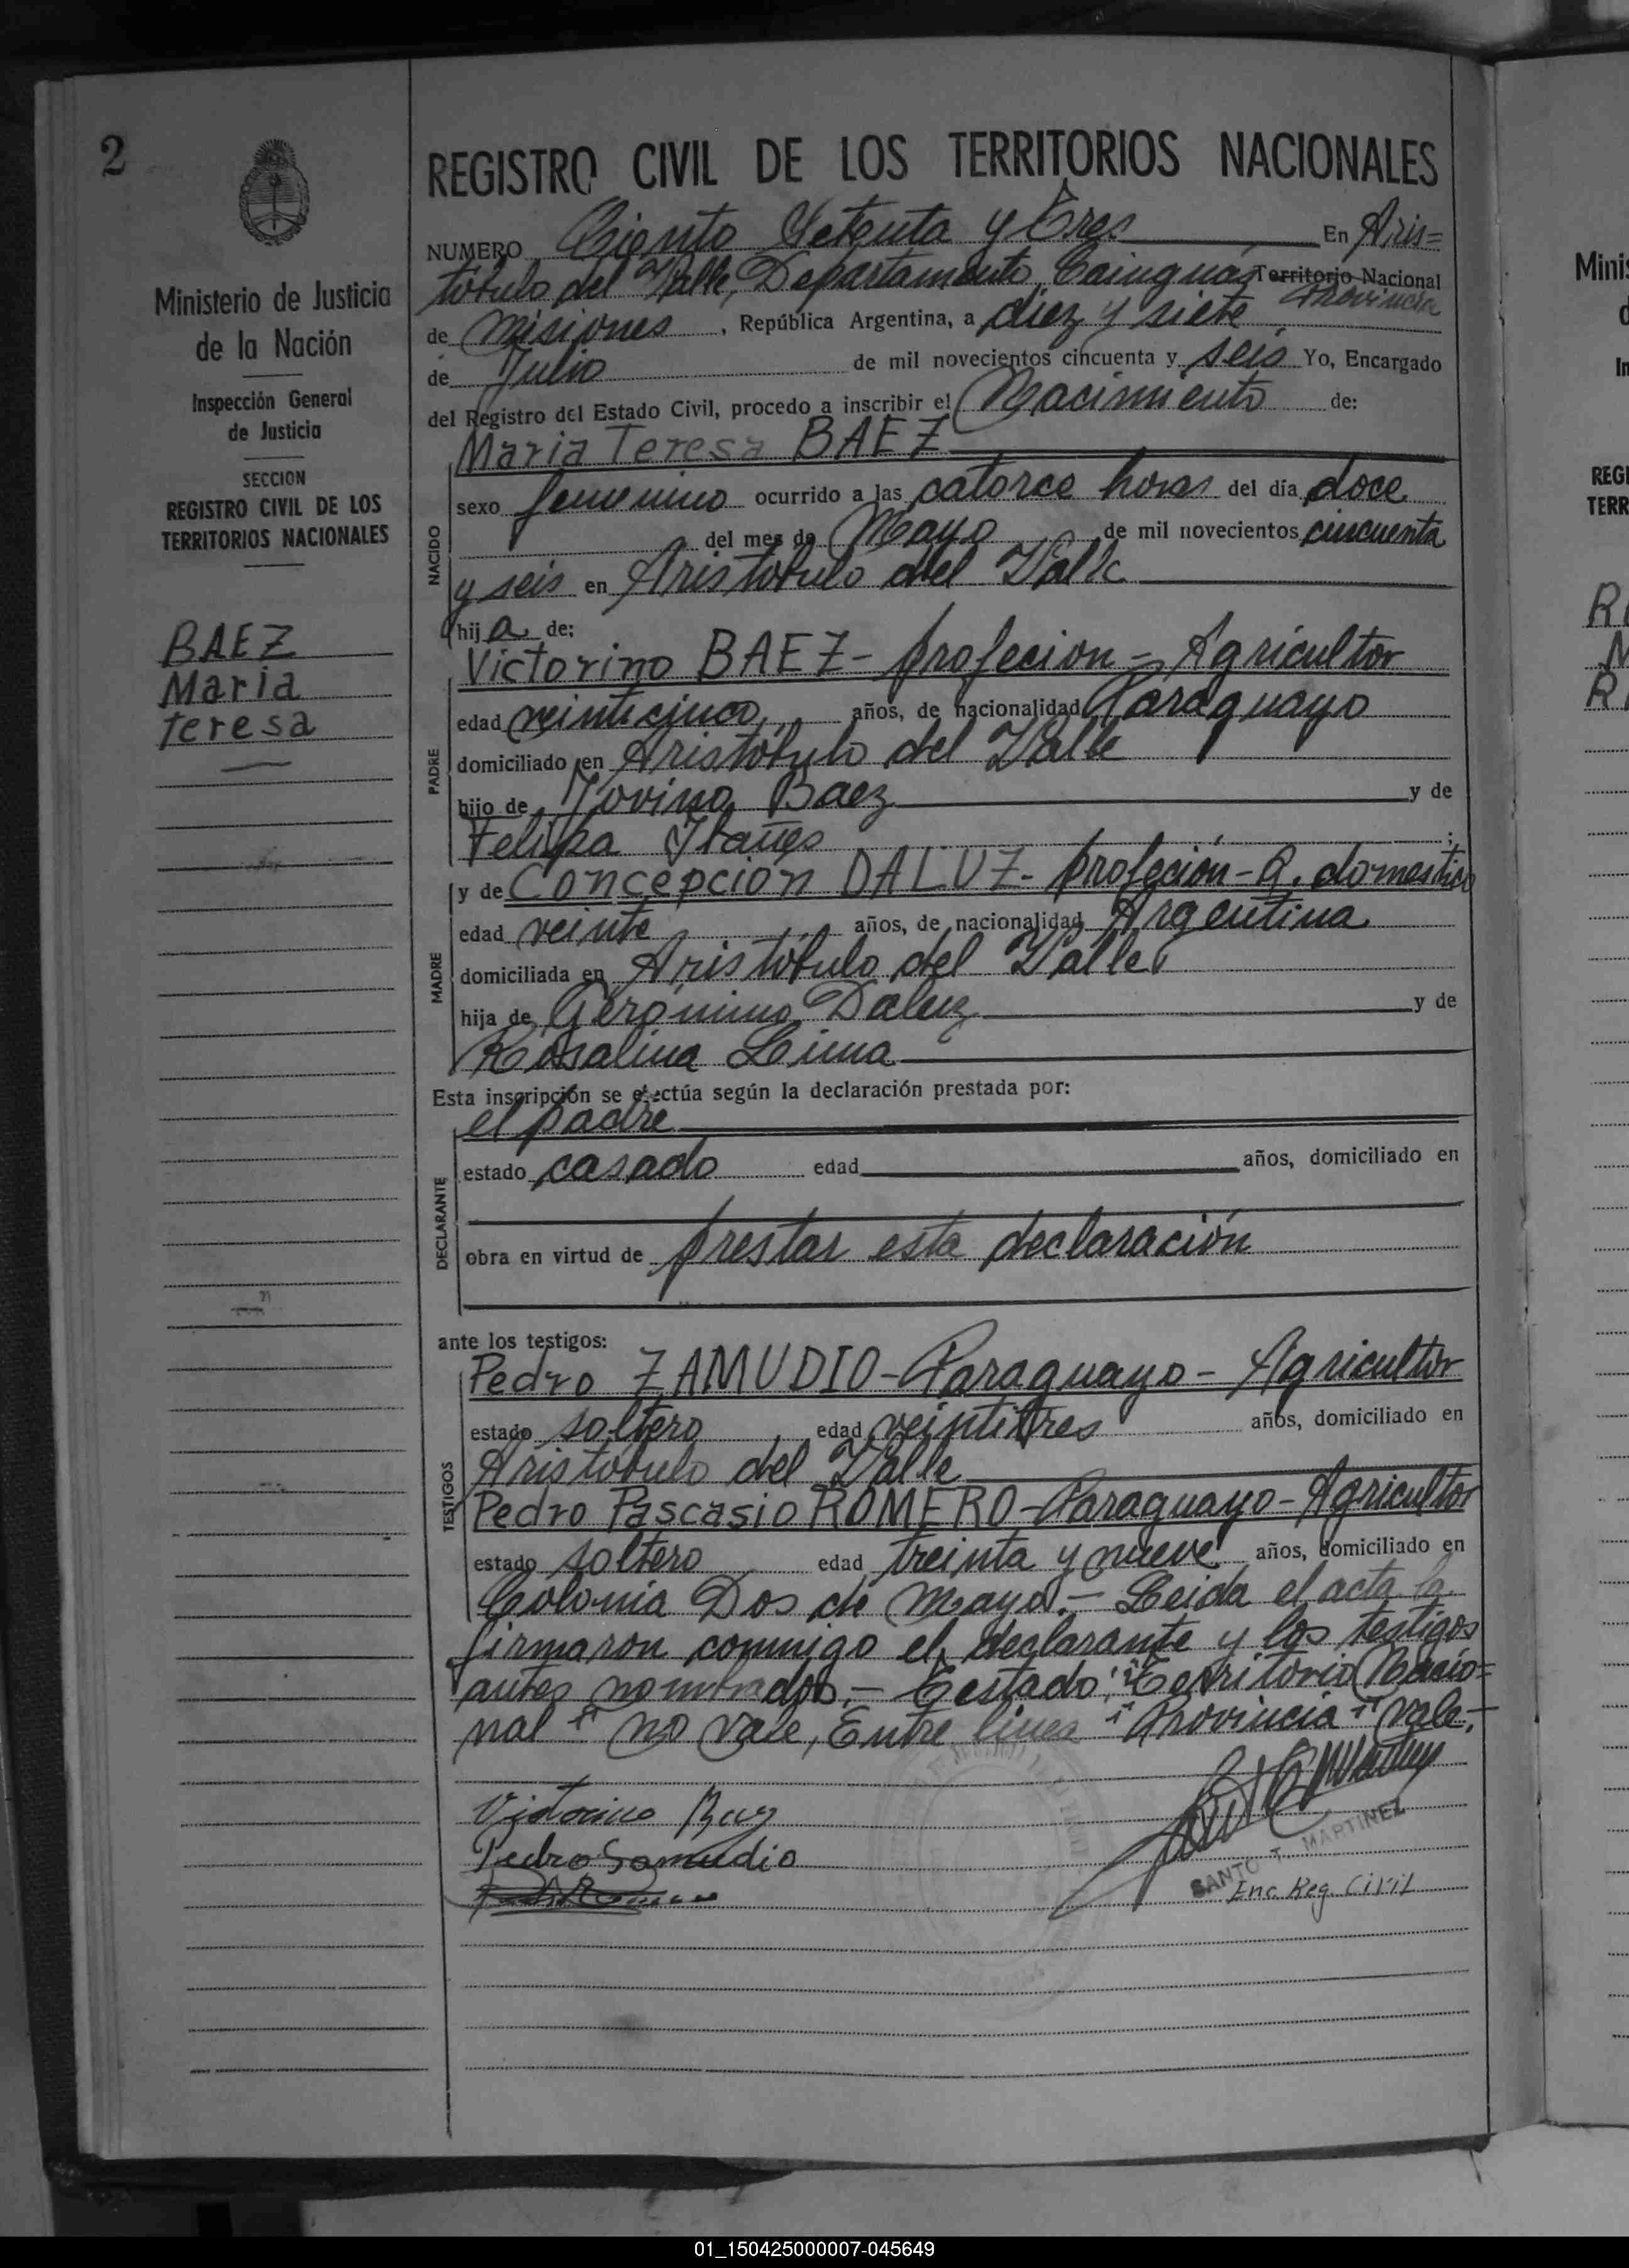 2
Ministerio de Justicia
de la Nación
Inspección General
de Justicia
SECCION
REGISTRO CIVIL DE LOS
TERRITORIOS NACIONALES
BAEZ
Maria
teresa
REGISTRO CIVIL DE LOS TERRITORIOS NACIONALES
NUMERO Ciento Setenta y Tres En Aris=
tóbulo del Valle, Departamento, Cainguás Territorio Nacional
Provincia
de Misiones, República Argentina, a diez y siete
de Julio de mil novecientos cincuenta y seis Yo, Encargado
del Registro del Estado Civil, procedo a inscribir el Nacimiento de:
Maria Teresa BAEZ
NACIDO
sexo femenino ocurrido a las catorce horas del día doce
del mes de Mayo de mil novecientos cincuenta
y seis en Aristobulo del Valle
hija de:
PADRE
Victorino BAEZ- profecion - Agricultor
edad veinticinco años, de nacionalidad Paraguayo
domiciliado en Aristóbulo del Valle
hijo de Jovina Baez y de
Felipa Ibañes ;
MADRE
y de Concepcion DALUZ- profeción - Q. domestico
edad veinte años, de nacionalidad Argentina
domiciliada en Aristóbulo del Valle
hija de Gerónimo Daluz y de
Rosalina Lima
Esta inscripción se efectúa según la declaración prestada por:
DECLARANTE
el padre
estado casado edad años, domiciliado en
obra en virtud de prestar esta declaración
ante los testigos:
TESTIGOS
Pedro ZAMUDIO - Paraguayo - Agricultor
estado soltero edad veintitres años, domiciliado en
Aristobulo del Valle
Pedro Pascasio ROMERO - Paraguayo - Agricultor
estado soltero edad treinta y nueve años, domiciliado en
Colonia Dos de Mayo.- Leida el acta la
firmaron conmigo el declarante y los testigos
antes nombrados.- Testado: "Territorio Nacio=
nal" no vale, Entre linea "Provincia" vale.-
Victorino Baez
Pedro Samudio
SANTO T. MARTINEZ
Enc. Reg. Civil
Minis
REGI
TERR
01_150425000007-045649